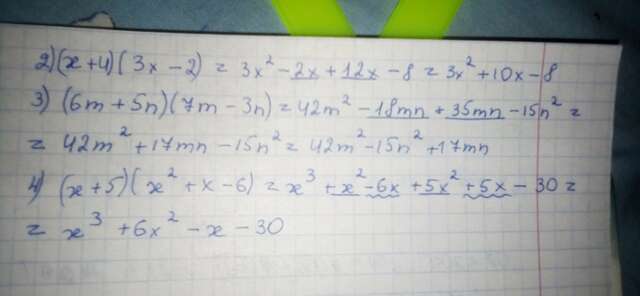 2) (x+4)(3x-2) = 3x² - 2x + 12x - 8 = 3x² + 10x - 8
3) (6m + 5n)(7m - 3n) = 42m² - 18mn + 35mn - 15n² =
= 42m² + 17mn - 15n² = 42m² - 15n² + 17mn
4) (x+5)(x² + x - 6) = x³ + x² - 6x + 5x² + 5x - 30 =
= x³ + 6x² - x - 30